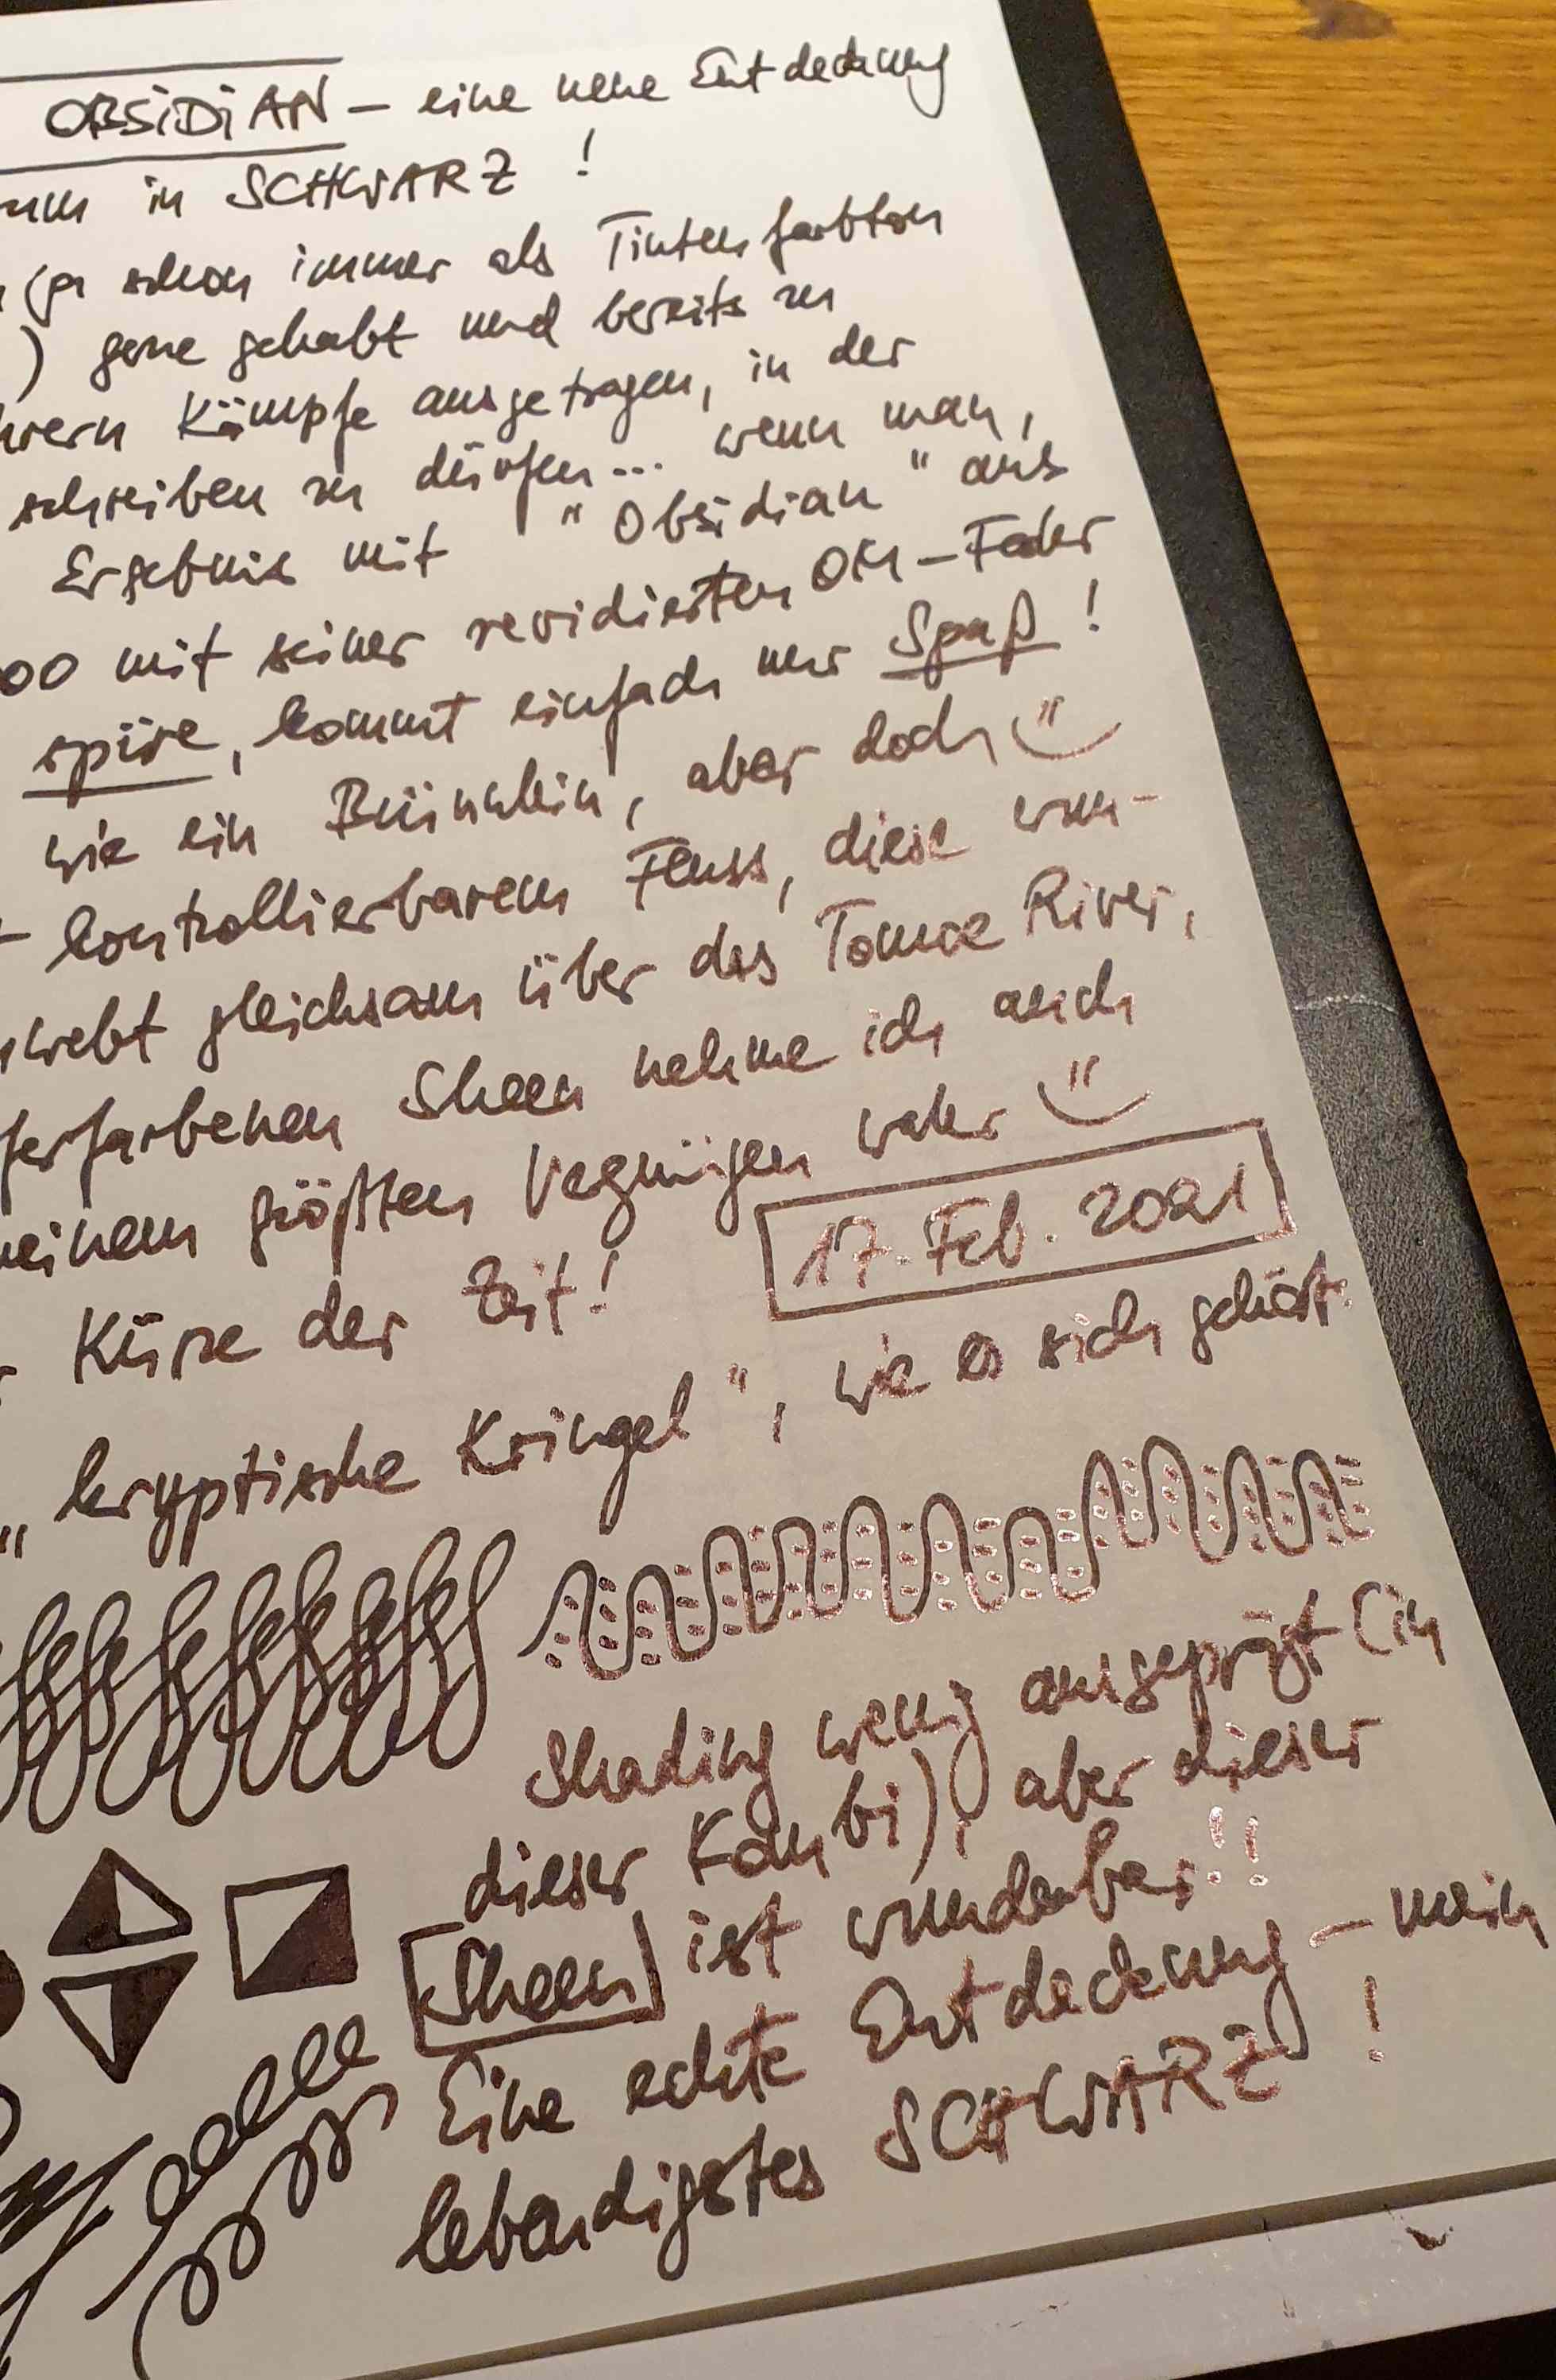 OBSiDiAN – eine neue Entdeckung
in SCHWARZ !
schon immer als Tintenfarbton
) gerne gehabt und bereits zu
Kämpfe ausgetragen, in der
schreiben zu dürfen... wenn man,
Ergebnis mit "Obsidian" aus
00 mit seiner revidierten OM-Feder
spüre, kommt einfach nur Spaß !
wie ein Bünnlein, aber doch
kontrollierbarem Fluss, diese wun-
webt gleichsam über das Tomoe River,
ferfarbenen Sheen nehme ich auch
einem größten Vegnügen wahr
Kürze der Zeit!
17. Feb. 2021
„kryptische Kringel“, wie es sich gehört.
Shading wenig ausgeprägt (in
dieser Kombi), aber dieser
Sheen ist wunderbar!!
Eine echte Entdeckung – mein
lebendigstes SCHWARZ !